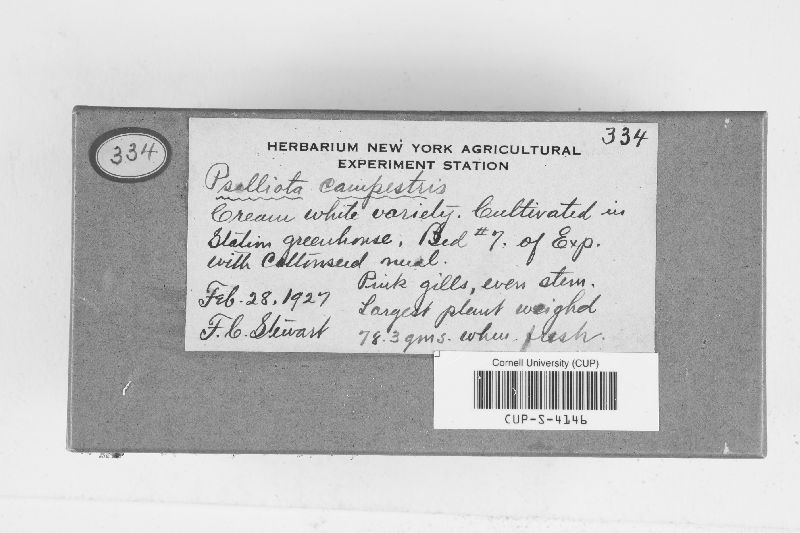 334
334
HERBARIUM NEW YORK AGRICULTURAL
EXPERIMENT STATION
Psalliota campestris
Cream white variety. Cultivated in
Station greenhouse. Bed #7. of Exp.
with Cottonseed meal.
Pink gills, even stem.
Feb. 28, 1927
Largest plant weighd
F. C. Stewart
78.3 gms. when fresh.
Cornell University (CUP)
CUP-S-4146